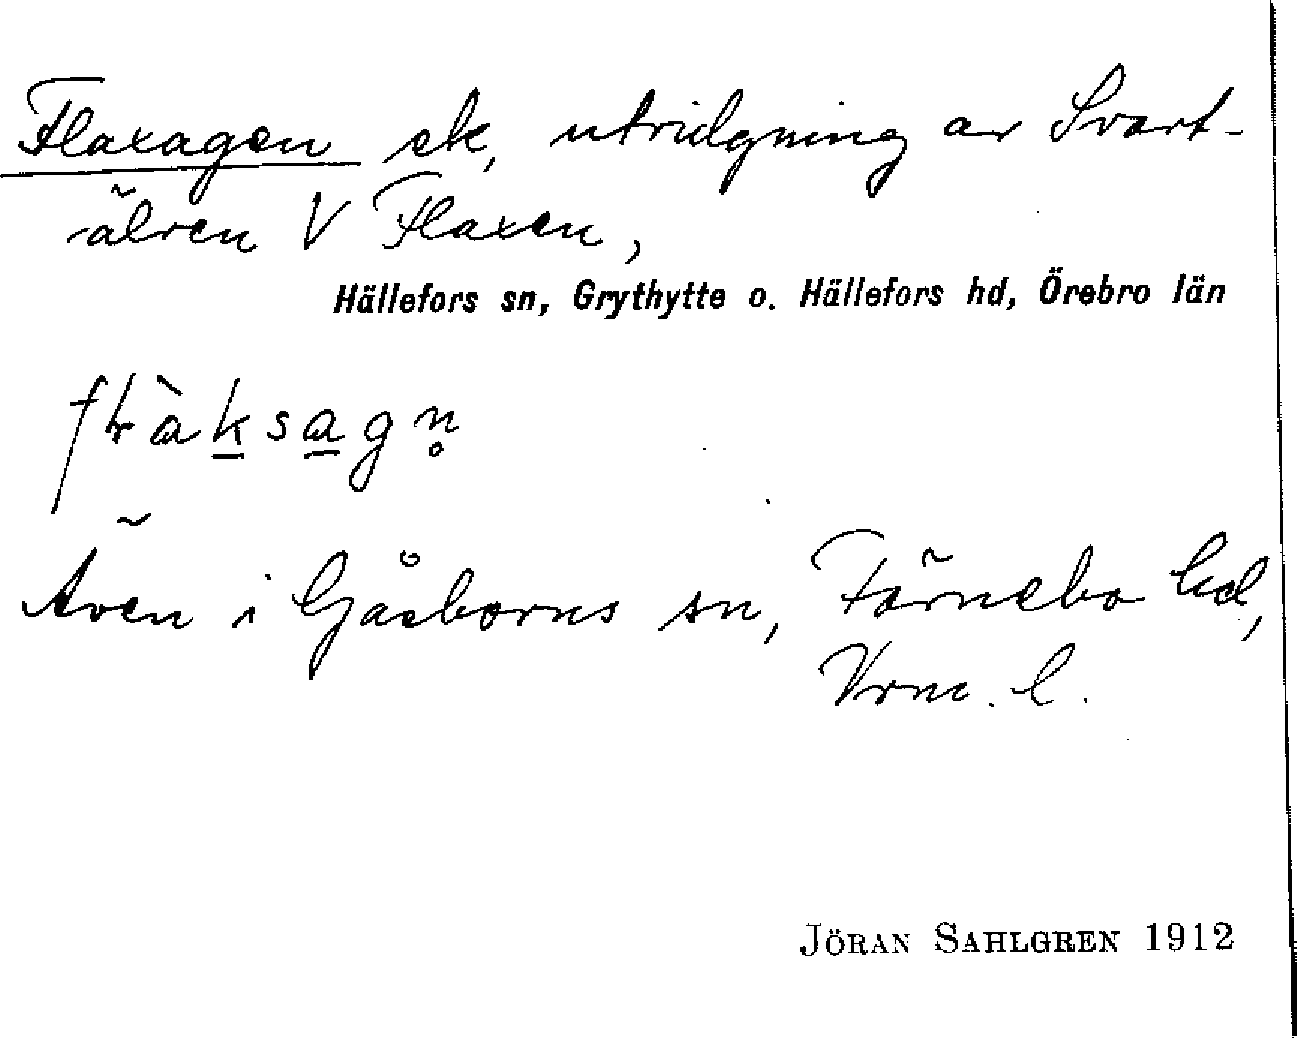 Flaxagen sk, utvidgning av Svart-
älven V Flaxen,
Hällefors sn, Grythytte o. Hällefors hd, Örebro län
Även i Gåsborns sn, Färnebo hd,
Vrm. l.
JÖRAN SAHLGREN 1912